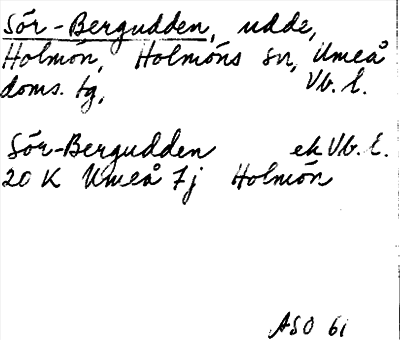 Sör-Bergudden, udde,
Holmön, Holmöns sn, Umeå
doms. tg, Vb. l.
Sör-Bergudden ek Vb. l.
20 K Umeå 7j Holmön
ASO 61